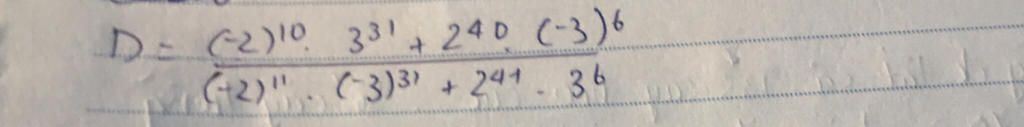 D = (-2)¹⁰. 3³¹ + 2⁴⁰. (-3)⁶
(-2)¹¹ . (-3)³¹ + 2⁴¹ . 3⁶